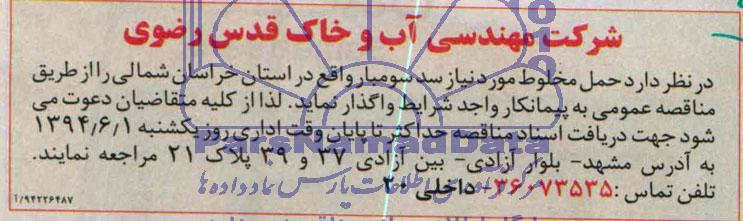 شرکت مهندسی آب و خاک قدس رضوی
در نظر دارد حمل مخلوط مورد نیاز سد سومبار واقع در استان خراسان شمالی را از طریق
مناقصه عمومی به پیمانکار واجد شرایط واگذار نماید. لذا از کلیه متقاضیان دعوت می
شود جهت دریافت اسناد مناقصه حداکثر تا پایان وقت اداری روز یکشنبه ۱۳۹۴٫۶٫۱
به آدرس مشهد- بلوار آزادی- بین آزادی ۳۷ و ۳۹ پلاک ۲۱ مراجعه نمایند.
تلفن تماس :۳۶۰۷۳۵۳۵- داخلی ۲۰
۱/۹۴۲۲۶۴۸۷
ParsNamadData